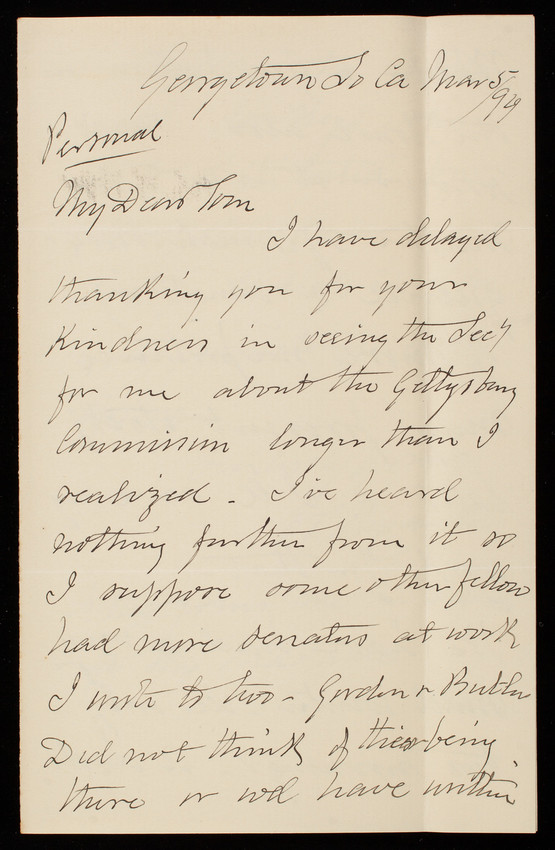 Georgetown So Ca Mar 5
/94
Personal
My Dear Tom
I have delayed
thanking you for your
Kindness in seeing the Secy
for me about the Gettysburg
Commission longer than I
realized - I've heard
nothing further from it so
I suppose some other fellow
had more senators at work
I wrote to two - Gordon & Butler
Did not think of their being
there or wd have written